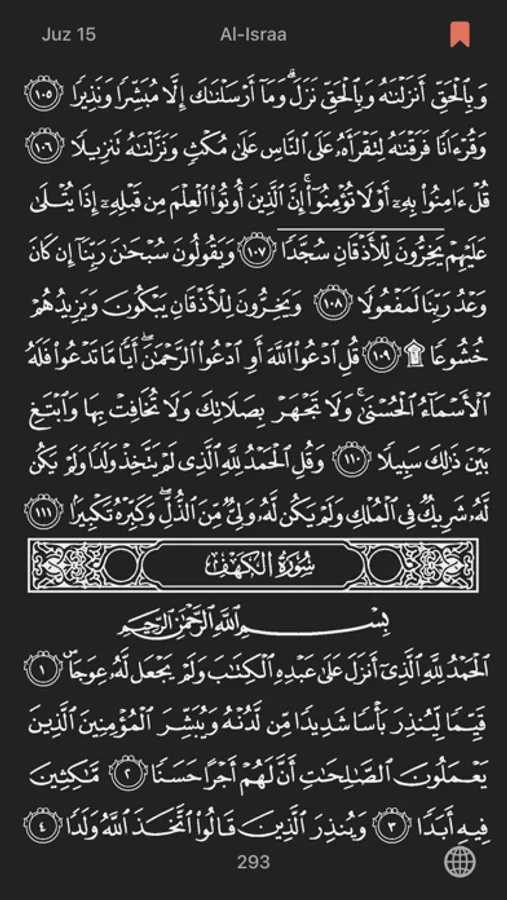 Juz 15
Al-Israa
وَبِٱلْحَقِّ أَنزَلْنَـٰهُ وَبِٱلْحَقِّ نَزَلَ ۗ وَمَآ أَرْسَلْنَـٰكَ إِلَّا مُبَشِّرًا وَنَذِيرًا ١٠٥
وَقُرْءَانًا فَرَقْنَـٰهُ لِتَقْرَأَهُۥ عَلَى ٱلنَّاسِ عَلَىٰ مُكْثٍ وَنَزَّلْنَـٰهُ تَنزِيلًا ١٠٦
قُلْ ءَامِنُوا۟ بِهِۦٓ أَوْ لَا تُؤْمِنُوٓا۟ ۚ إِنَّ ٱلَّذِينَ أُوتُوا۟ ٱلْعِلْمَ مِن قَبْلِهِۦٓ إِذَا يُتْلَىٰ
عَلَيْهِمْ يَخِرُّونَ لِلْأَذْقَانِ سُجَّدًا ١٠٧ وَيَقُولُونَ سُبْحَـٰنَ رَبِّنَآ إِن كَانَ
وَعْدُ رَبِّنَا لَمَفْعُولًا ١٠٨ وَيَخِرُّونَ لِلْأَذْقَانِ يَبْكُونَ وَيَزِيدُهُمْ
خُشُوعًا ۩ ١٠٩ قُلِ ٱدْعُوا۟ ٱللَّهَ أَوِ ٱدْعُوا۟ ٱلرَّحْمَـٰنَ ۖ أَيًّا مَّا تَدْعُوا۟ فَلَهُ
ٱلْأَسْمَآءُ ٱلْحُسْنَىٰ ۚ وَلَا تَجْهَرْ بِصَلَاتِكَ وَلَا تُخَافِتْ بِهَا وَٱبْتَغِ
بَيْنَ ذَٰلِكَ سَبِيلًا ١١٠ وَقُلِ ٱلْحَمْدُ لِلَّهِ ٱلَّذِى لَمْ يَتَّخِذْ وَلَدًا وَلَمْ يَكُن
لَّهُۥ شَرِيكٌ فِى ٱلْمُلْكِ وَلَمْ يَكُن لَّهُۥ وَلِىٌّ مِّنَ ٱلذُّلِّ ۖ وَكَبِّرْهُ تَكْبِيرًۢا ١١١
سُورَةُ الكَهْفِ
بِسْمِ ٱللَّهِ ٱلرَّحْمَـٰنِ ٱلرَّحِيمِ
ٱلْحَمْدُ لِلَّهِ ٱلَّذِىٓ أَنزَلَ عَلَىٰ عَبْدِهِ ٱلْكِتَـٰبَ وَلَمْ يَجْعَل لَّهُۥ عِوَجَا ۜ ١
قَيِّمًا لِّيُنذِرَ بَأْسًا شَدِيدًا مِّن لَّدُنْهُ وَيُبَشِّرَ ٱلْمُؤْمِنِينَ ٱلَّذِينَ
يَعْمَلُونَ ٱلصَّـٰلِحَـٰتِ أَنَّ لَهُمْ أَجْرًا حَسَنًا ٢ مَّـٰكِثِينَ
فِيهِ أَبَدًا ٣ وَيُنذِرَ ٱلَّذِينَ قَالُوا۟ ٱتَّخَذَ ٱللَّهُ وَلَدًا ٤
293